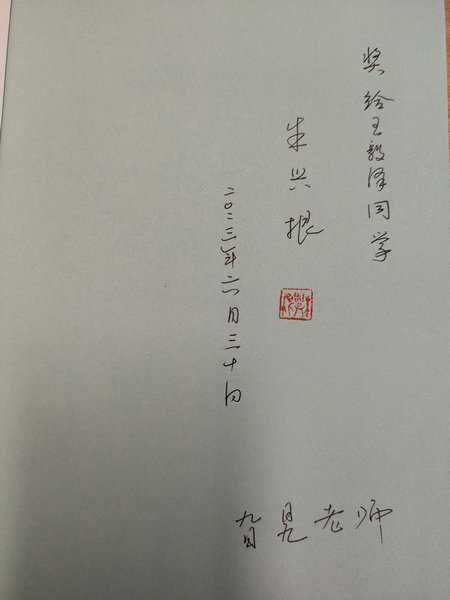 奖给王毅泽同学
朱兴根
二〇二三年六月三十日
旮旯老师